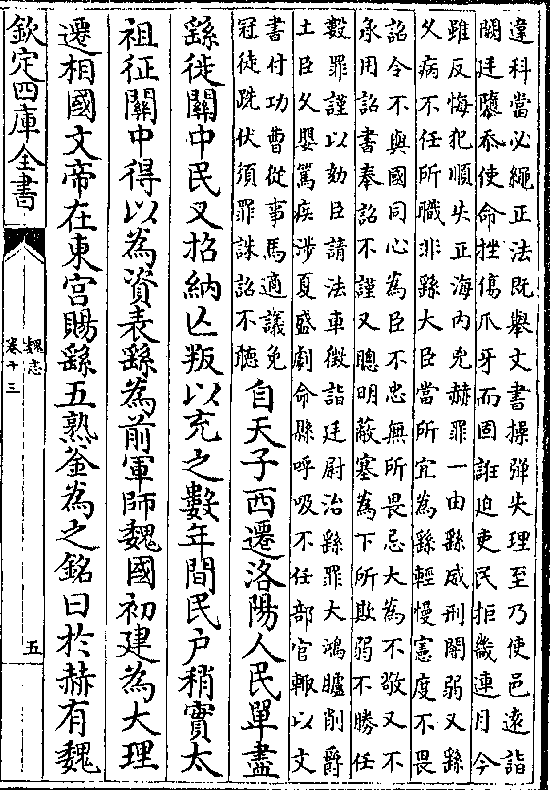 違科當必繩正法既舉文書操彈失理至乃使邑遠詣
闕廷隳忝使命挫傷爪牙而固誑迫吏民拒畿連月今
雖反悔犯順失正海内兇赫罪一由繇威刑闇弱又繇
久病不任所職非繇大臣當所宜為繇輕慢憲度不畏
詔令不與國同心為臣不忠無所畏忌大為不敬又不
承用詔書奉詔不謹又聰明蔽塞為下所欺弱不勝任
數罪謹以劾臣請法車徵詣廷尉治繇罪大鴻臚削爵
土臣久嬰篤疾涉夏盛劇命縣呼吸不任部官輒以文
書付功曹從事馬適議免
冠徒跣伏須罪誅詔不聽
自天子西遷洛陽人民單盡
繇徙關中民又招納亾叛以充之數年間民户稍實太
祖征關中得以為資表繇為前軍師魏國初建為大理
遷相國文帝在東宮賜繇五熟釜為之銘曰於赫有魏
欽定四庫全書
魏志
卷十三
五